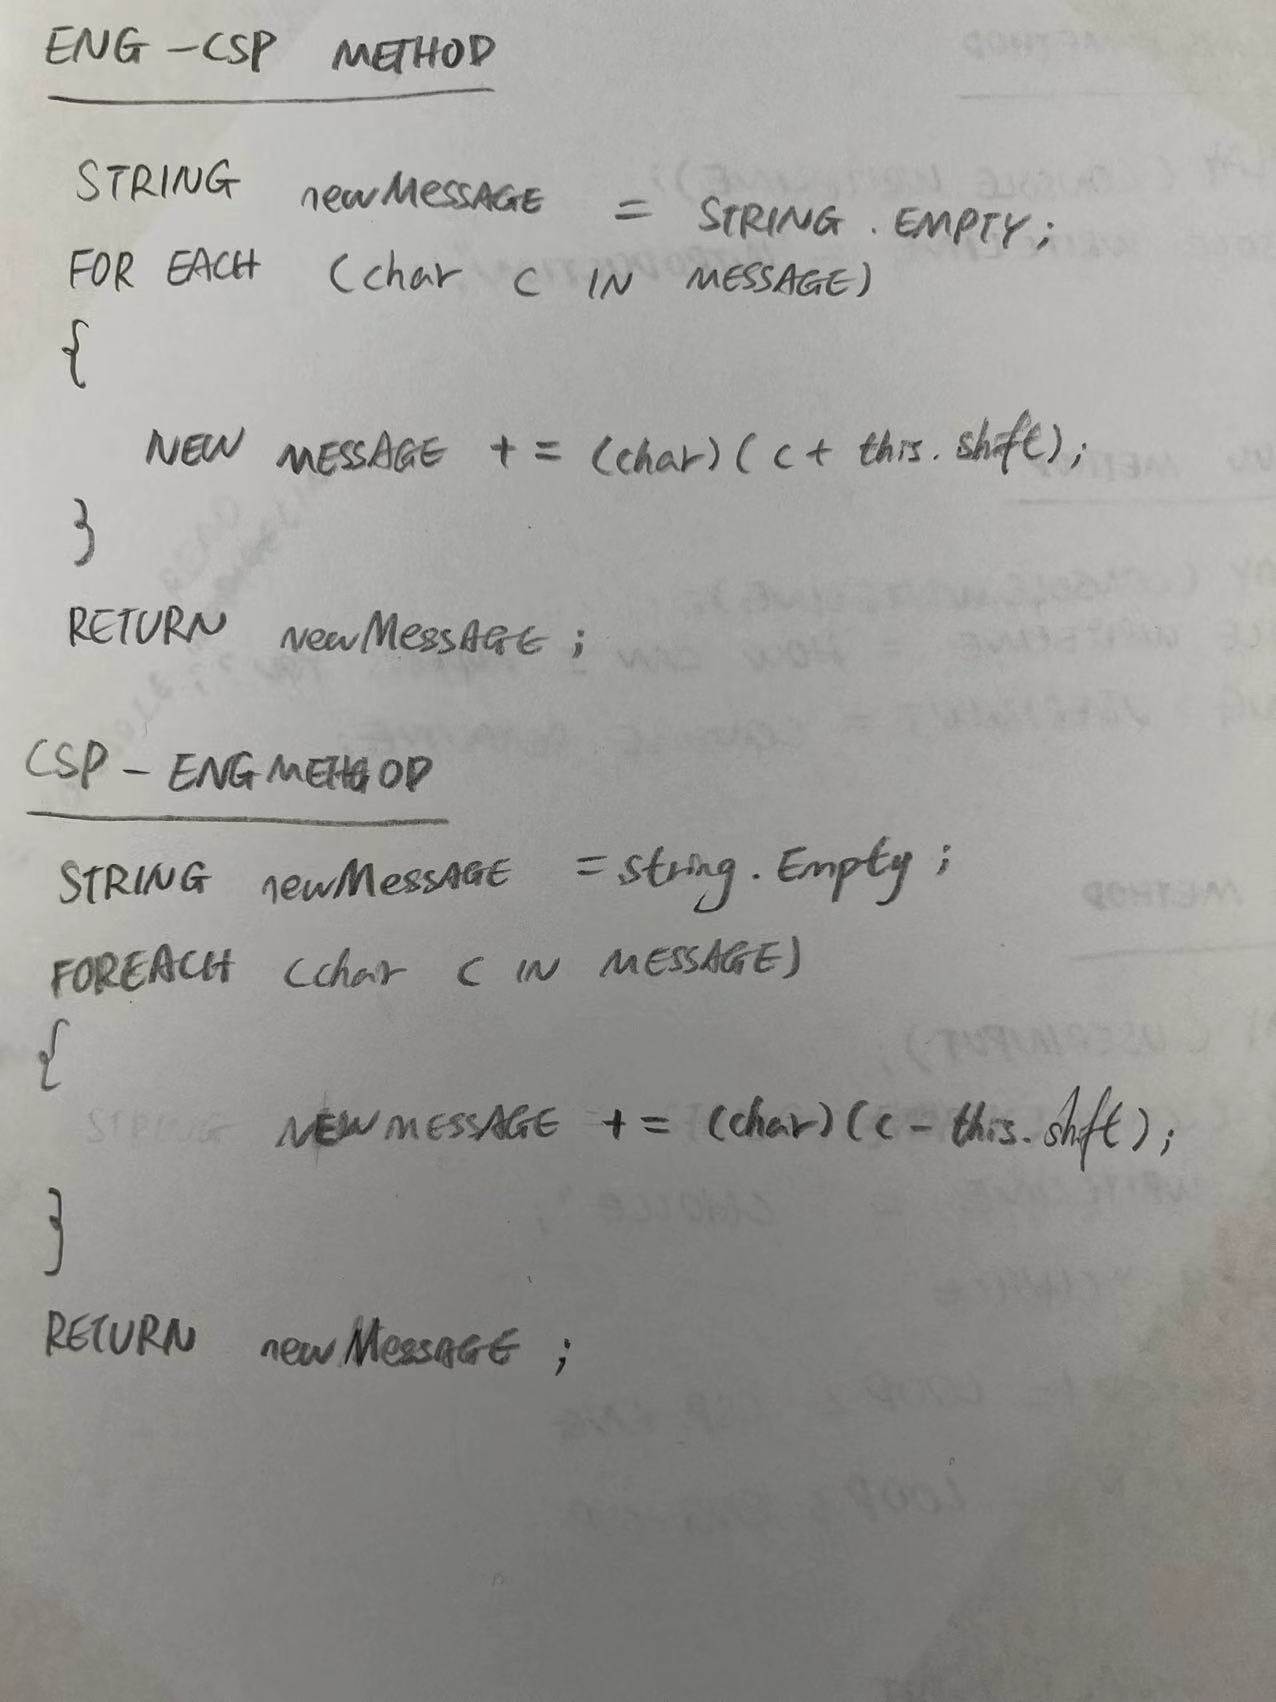 ENG-CSP METHOD
STRING newMeSSAGE = STRING.EMPTY;
FOR EACH (char c IN MESSAGE)
{
NEW MESSAGE += (char)(c + this.shift);
}
RETURN newMeSSAGE;
CSP-ENGMETHOD
STRING newMeSSAGE = string.Empty;
FOREACH (char c IN MESSAGE)
{
NEWMESSAGE += (char)(c - this.shift);
}
RETURN newMeSSAGE;